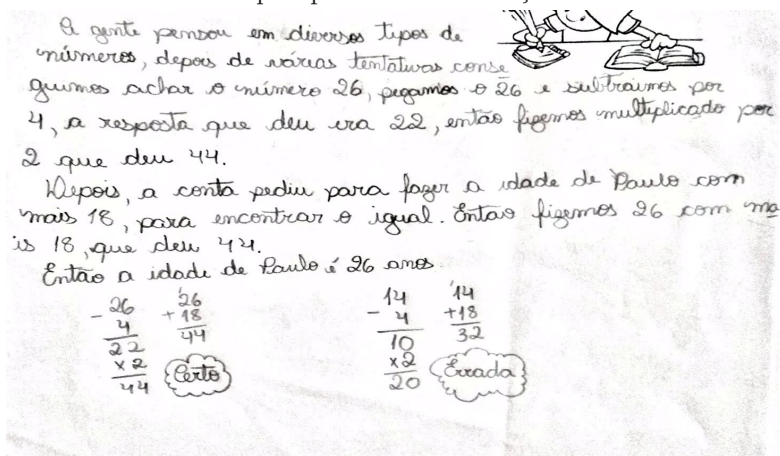 A gente pensou em diversos tipos de
números, depois de várias tentativas conse
guimos achar o número 26, pegamos o 26 e subtraimos por
4, a resposta que deu era 22, então fizemos multiplicado por
2 que deu 44.
Depois, a conta pediu para fazer a idade de Paulo com
mais 18, para encontrar o igual. Então fizemos 26 com ma
is 18, que deu 44.
Então a idade de Paulo é 26 anos.
26 26 14 14
- 4 + 18 - 4 + 18
22 44 10 32
x 2 x 2
44 Certo 20 Errada